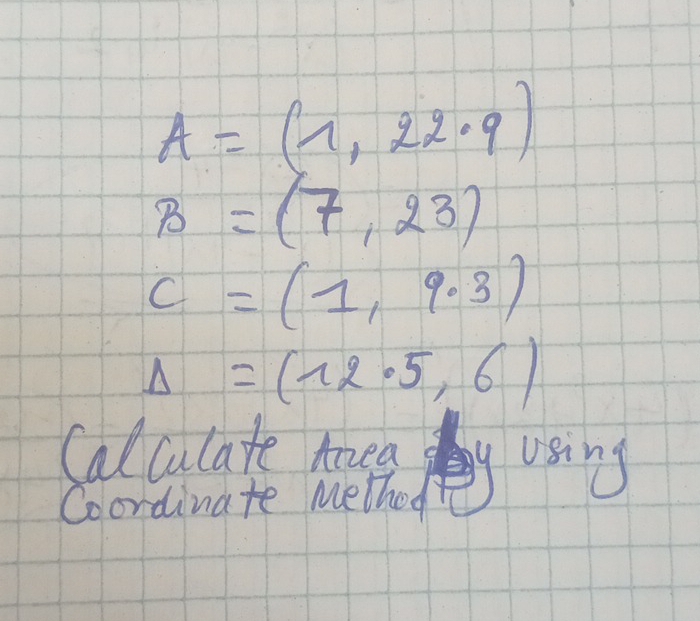 A = (1, 22.9)
B = (7, 23)
C = (1, 9.3)
D = (12.5, 6)
Calculate Area by using
Coordinate Method